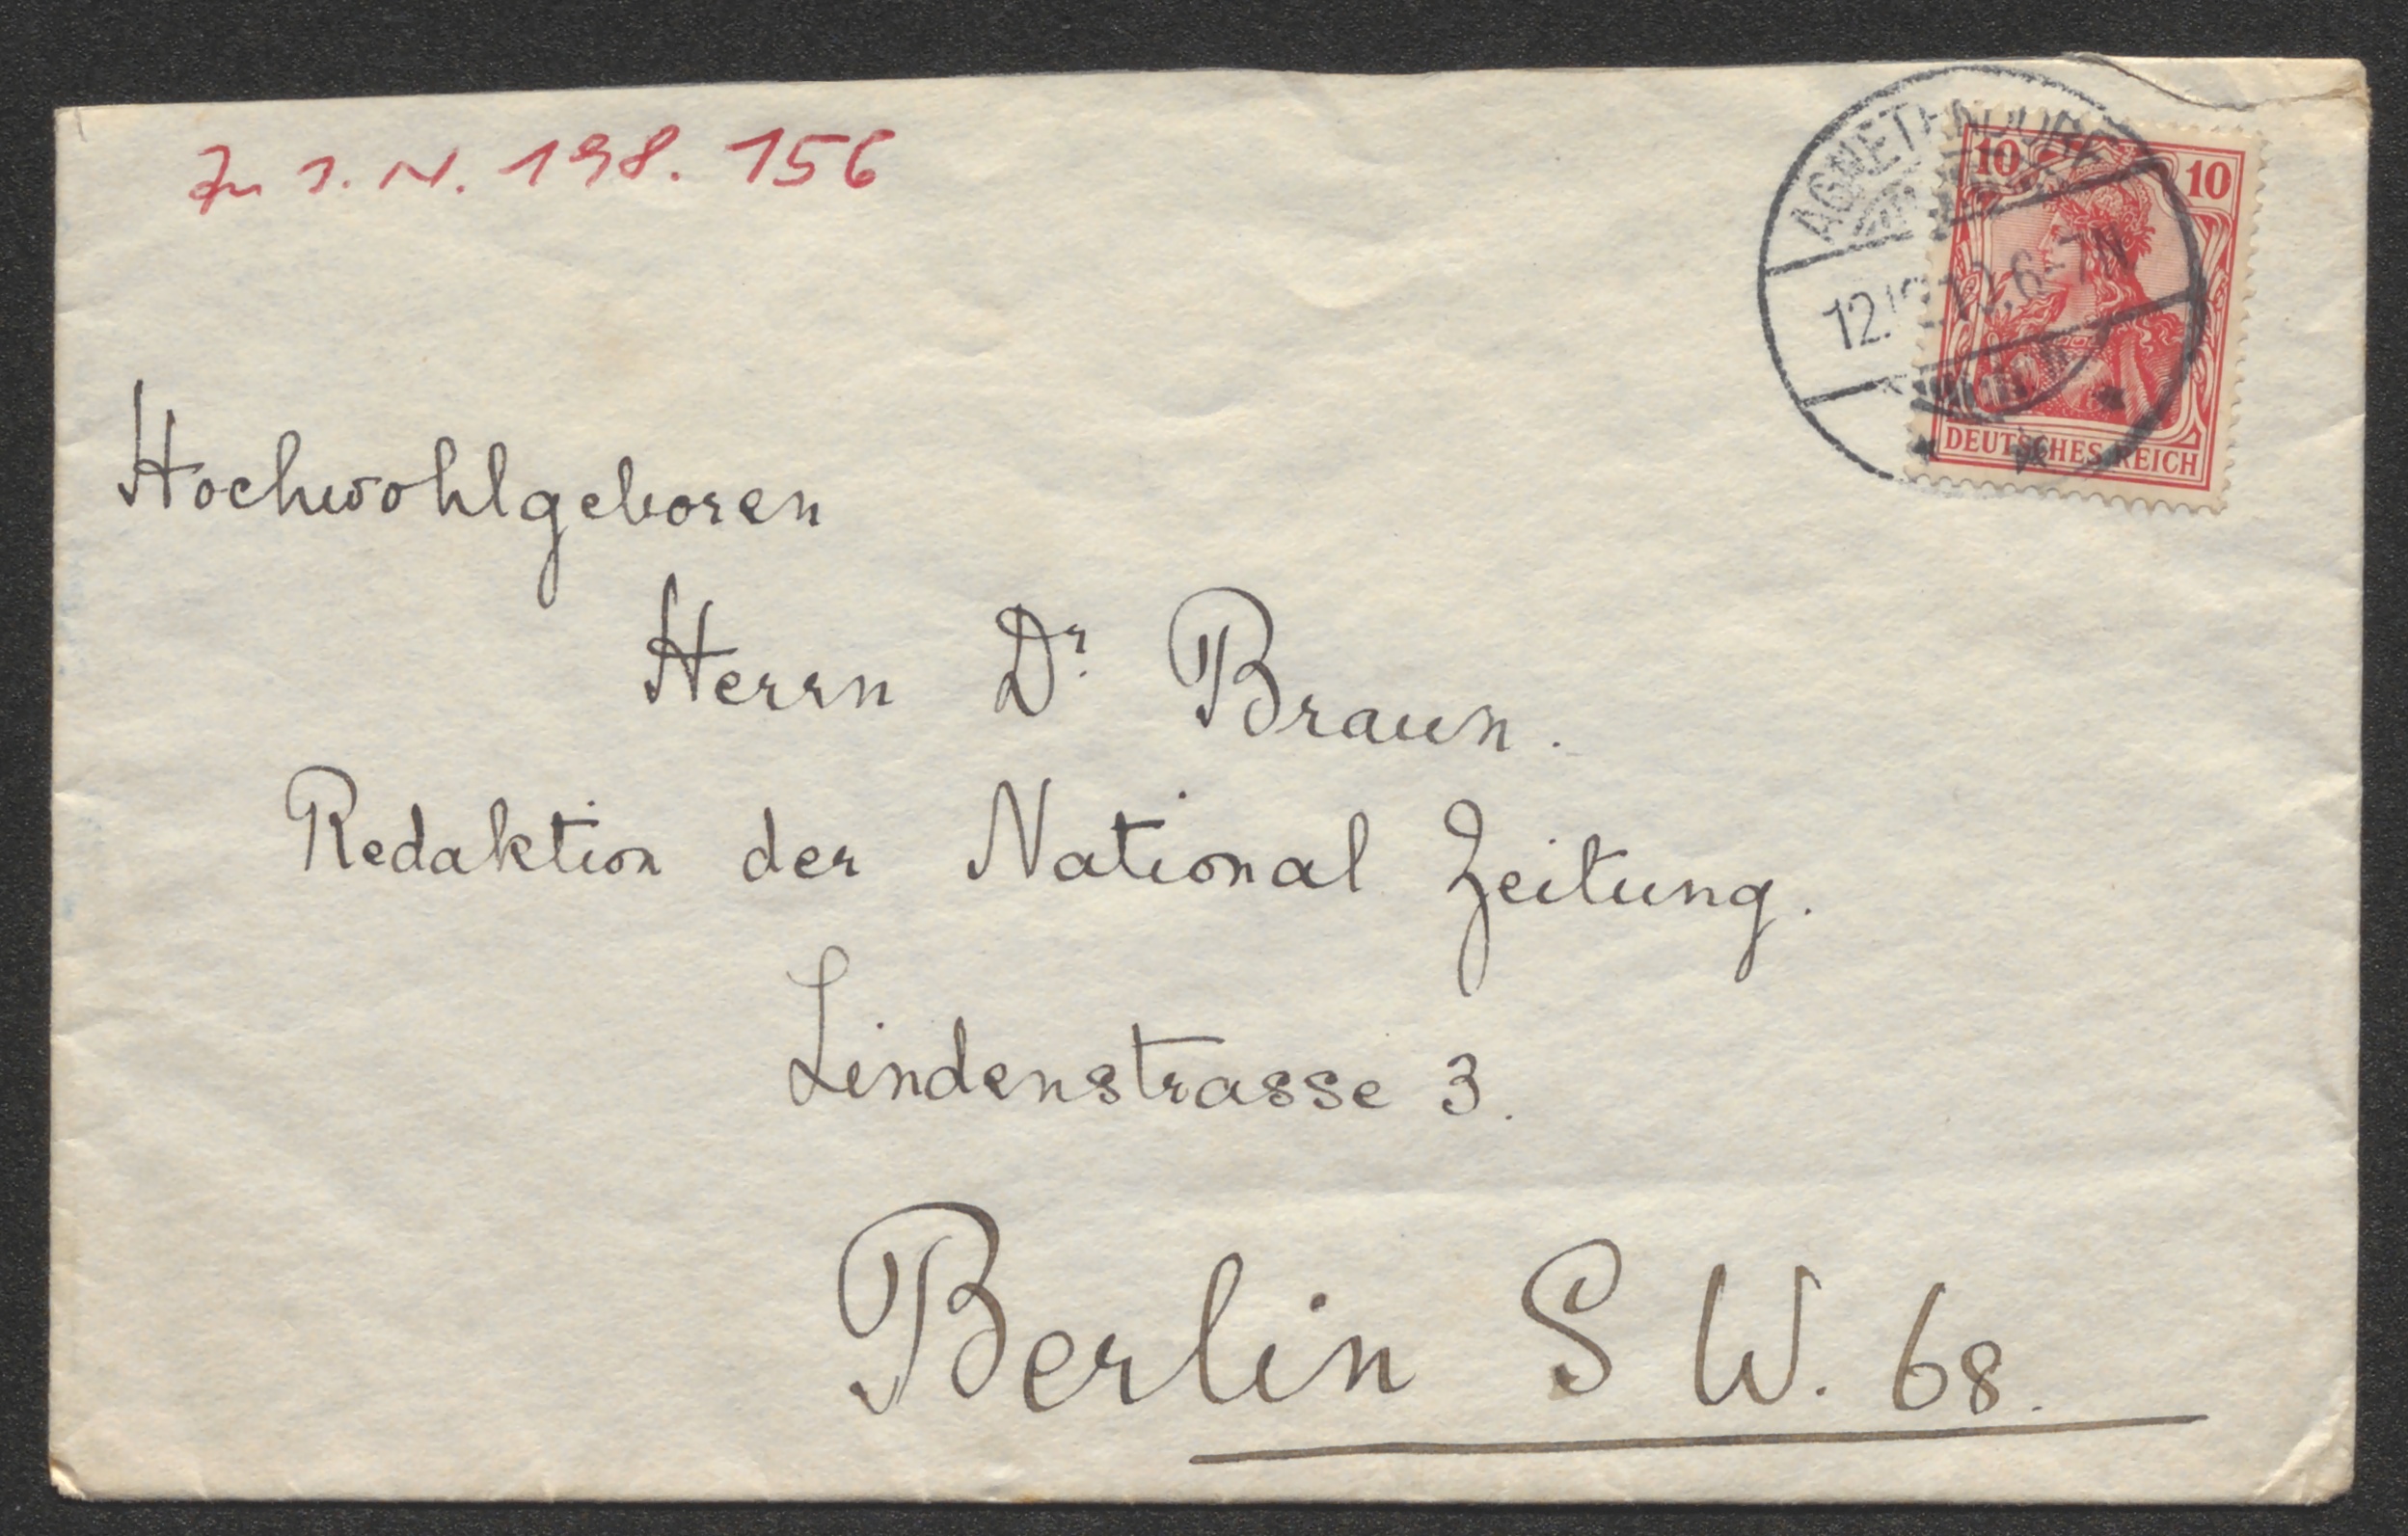 Zu I. N. 198. 156
10 10
AGNETENDORF
12. 12. 6-7N
DEUTSCHES REICH
Hochwohlgeboren
Herrn Dr. Braun.
Redaktion der National Zeitung.
Lindenstrasse 3.
Berlin S W. 68.